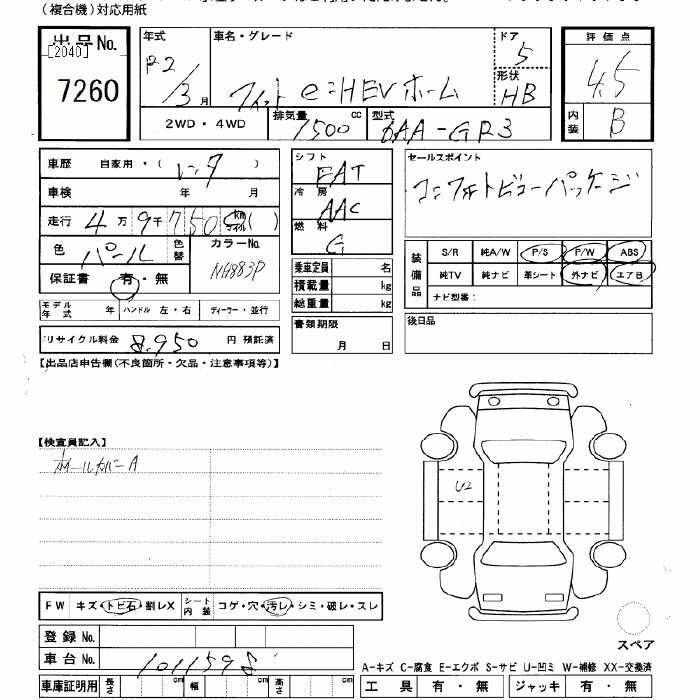 (複合機)対応用紙
出品No.
[2040]
7260
年式 車名・グレード ドア 5
R2/3月 フィット e:HEVホーム 形状 HB
2WD・4WD 排気量 1500 cc 型式 6AA-GR3
評価点
4.5
内装 B
車歴 自家用・(レンタ)
車検 年 月
走行 4万9千750 km マイル ( )
色 パール 色替 カラーNo.
保証書 有・無 NH883P
モデル年式 年 ハンドル 左・右 ディーラー・並行
リサイクル料金 8,950 円 預託済
シフト FAT
冷房 AAC
燃料 G
乗車定員 名
積載量 kg
総重量 kg
書類期限
月 日
セールスポイント
コンフォートビューパッケージ
装備品 S/R 純A/W P/S P/W ABS
純TV 純ナビ 革シート 外ナビ エアB
ナビ型番:
後日品
【出品店申告欄(不良箇所・欠品・注意事項等)】
【検査員記入】
ホイールカバーA
U2
FW キズ・トビ石・割レX シート内装 コゲ・穴・汚レ・シミ・破レ・スレ
登録No.
車台No. 1011598
車庫証明用 長さ cm 幅 cm 高さ cm
スペア
A-キズ C-腐食 E-エクボ S-サビ U-凹ミ W-補修 XX-交換済
工具 有・無 ジャッキ 有・無